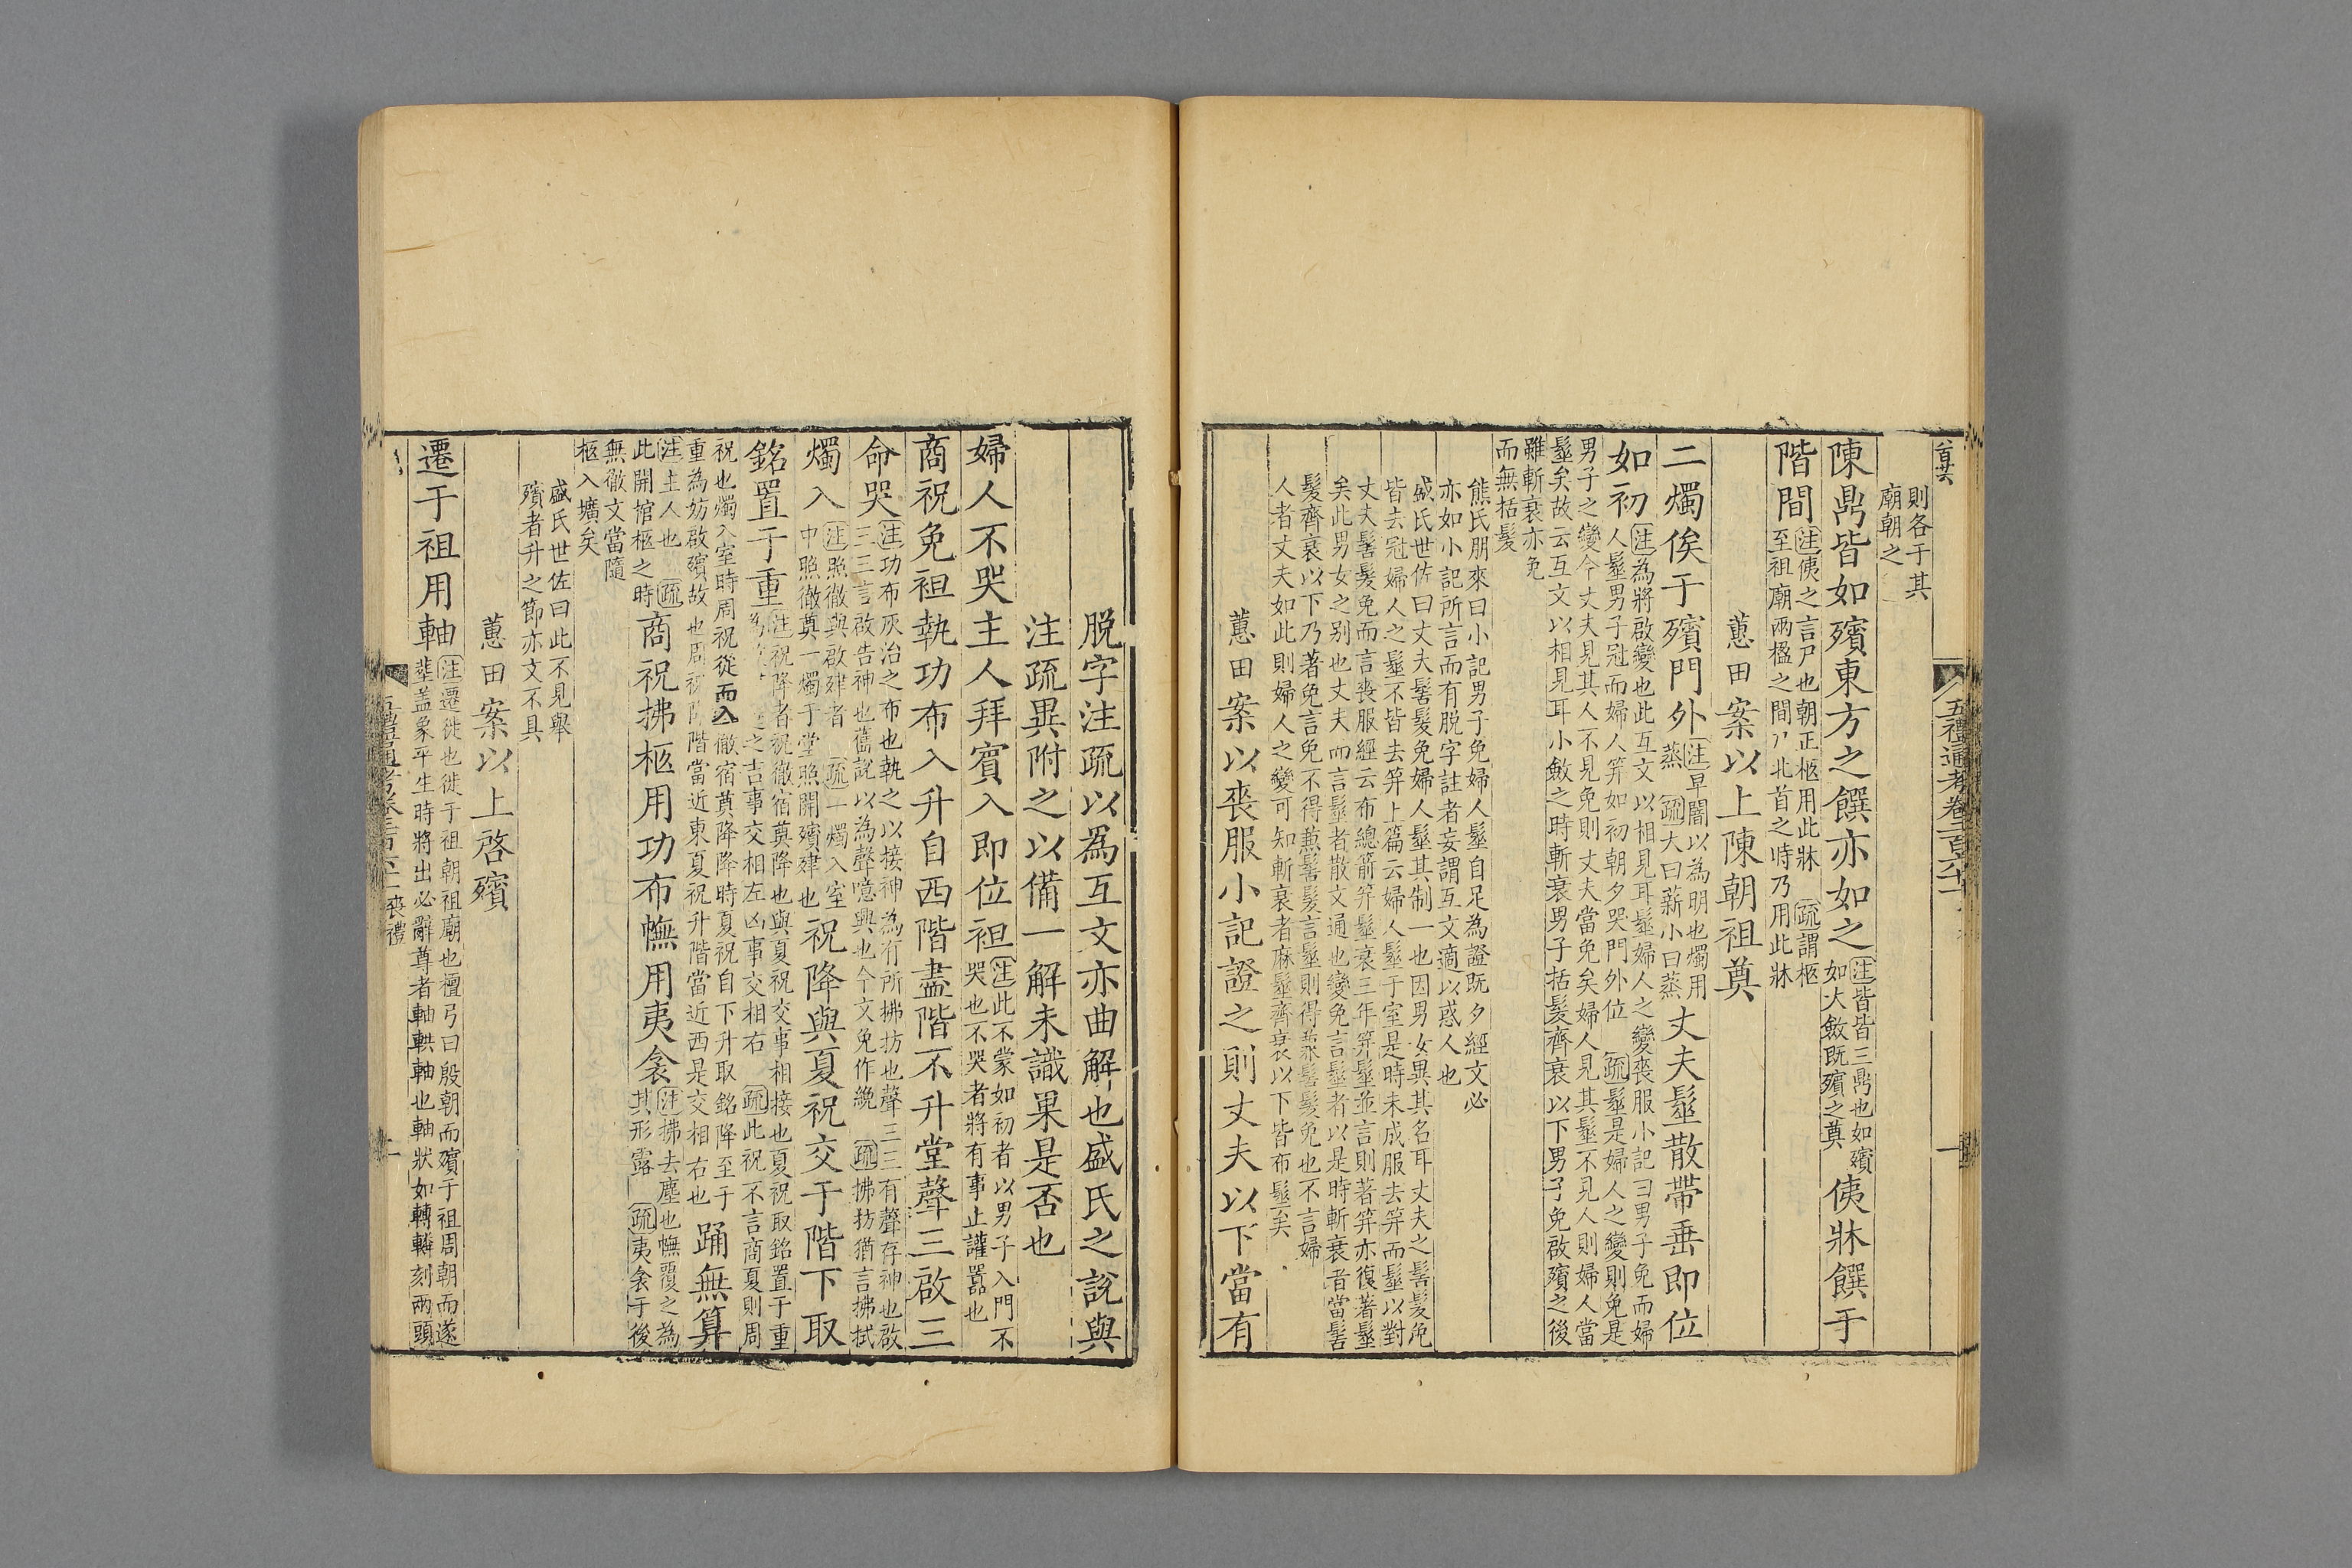 五禮通考卷二百六十
則各于其
廟朝之
陳鼎皆如殯東方之饌亦如之
注皆皆三鼎也如殯
如大斂既殯之奠
侇牀饌于
階間
注侇之言尸也朝正柩用此牀 疏謂柩
至祖廟兩楹之間尸北首之時乃用此牀
蕙田案以上陳朝祖奠
二燭俟于殯門外
注早闇以為明也燭用
蒸 疏大曰薪小曰蒸
丈夫髽散帶垂即位
如初
注為將啟變也此互文以相見耳髽婦人之變喪服小記曰男子免而婦
人髽男子冠而婦人笄如初朝夕哭門外位 疏髽是婦人之變則免是
男子之變今丈夫見其人不見免則丈夫當免矣婦人見其髽不見人則婦人當
髽矣故云互文以相見耳小斂之時斬衰男子括髮齊衰以下男子免啟殯之後
雖斬衰亦免
而無括髮
熊氏朋來曰小記男子免婦人髽自足為證既夕經文必
亦如小記所言而有脱字註者妄謂互文適以惑人也
盛氏世佐曰丈夫髻髮免婦人髽其制一也因男女異其名耳丈夫之髻髮免
皆去冠婦人之髽不皆去笄上篇云婦人髽于室是時未成服去笄而髽以對
丈夫髻髮免而言喪服經云布總箭笄髽衰三年笄髽並言則著笄亦復著髽
矣此男女之别也丈夫而言髽者散文通也變免言髽者以是時斬衰者當髻
髮齊衰以下乃著免言免不得兼髻髮言髽則得兼髻髮免也不言婦
人者丈夫如此則婦人之變可知斬衰者麻髽齊衰以下皆布髽矣
蕙田案以喪服小記證之則丈夫以下當有
脱字注疏以為互文亦曲解也盛氏之說與
注疏異附之以備一解未識果是否也
婦人不哭主人拜賓入即位袒
注此不蒙如初者以男子入門不
哭也不哭者將有事止讙嚣也
商祝免袒執功布入升自西階盡階不升堂聲三啟三
命哭
注功布灰治之布也執之以接神為有所拂㧍也聲三三有聲存神也啟
三三言啟告神也舊說以為聲噫興也今文免作絻 疏拂㧍猶言拂拭
燭入
注照徹與啟肂者 疏一燭入室
中照徹奠一燭于堂照開殯肂也
祝降與夏祝交于階下取
銘置于重
注祝降者祝徹宿奠降也與夏祝交事相接也夏祝取銘置于重
之吉事交相左凶事交相右 疏此祝不言商夏則周
祝也燭入室時周祝從而入徹宿奠降降時夏祝自下升取銘降至于
重為妨啟殯故也周祝降階當近東夏祝升階當近西是交相右也
踊無算
注主人也 疏
此開棺柩之時
商祝拂柩用功布幠用夷衾
注拂去塵也幠覆之為
其形露 疏夷衾于後
無徹文當隨
柩入壙矣
盛氏世佐曰此不見舉
殯者升之節亦文不具
蕙田案以上啓殯
遷于祖用軸
注遷徙也徙于祖朝祖廟也檀弓曰殷朝而殯于祖周朝而遂
葬盖象平生時將出必辭尊者軸輁軸也軸狀如轉轔刻兩頭
五禮通考卷二百六十 喪禮